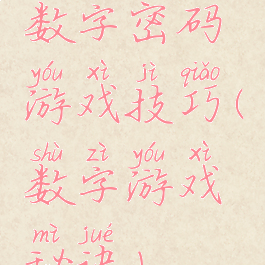 数字密码
yóu xì jì qiǎo
游戏技巧(
shù zì yóu xì
数字游戏
mì jué
秘诀)